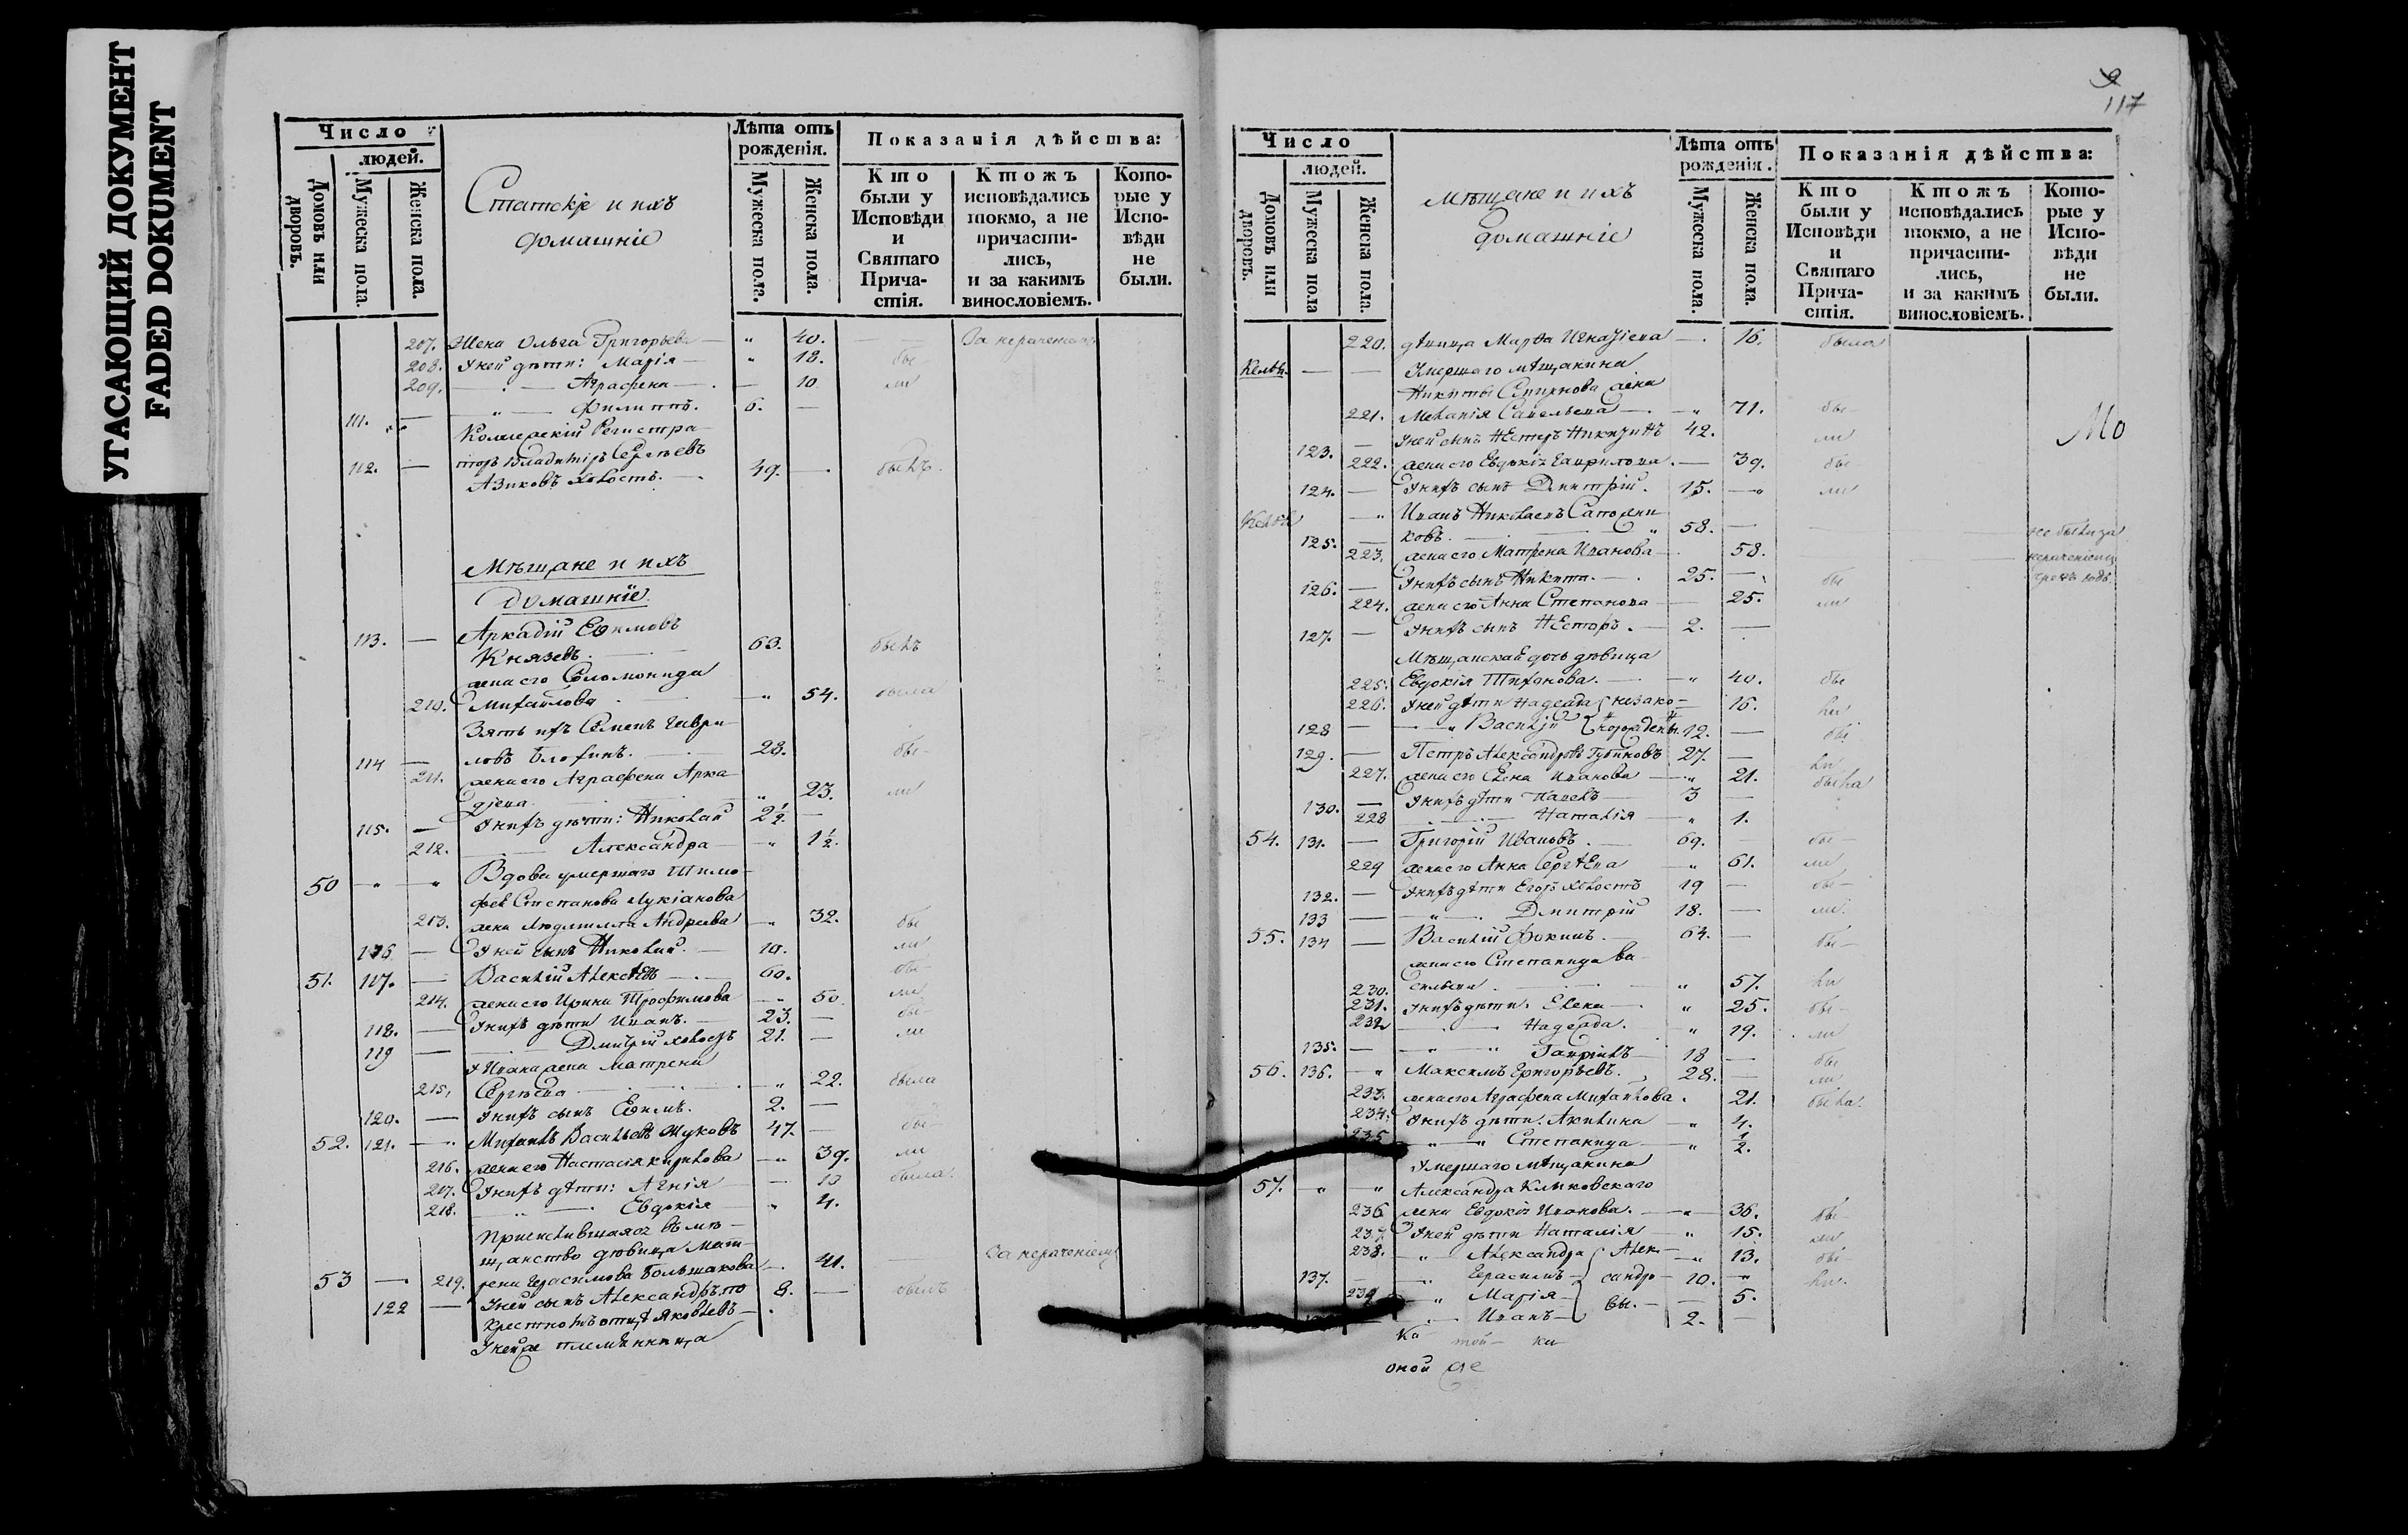 УГАСАЮЩИЙ ДОКУМЕНТ
FADED DOKUMENT
Число
людей.
Домовъ или дворовъ.
Мужеска пола.
Женска пола.
Статскіе и ихъ
домашніе
Лѣта отъ рожденія.
Мужеска пола.
Женска пола.
Показанія дѣйства:
Кто были у Исповѣди и Святаго Причастія.
Ктожъ исповѣдались токмо, а не причастились, и за какимъ винословіемъ.
Которые у Исповѣди не были.
207. Жена Ольга Григорьева — " 40. За нераченіемъ
208. У ней дѣти: Марія — " 18. бы-
209. " — Аграфена — 10 ли
111. — " — Филиппъ. 6. —
Коллежскій Регистра-
112. — торъ Владиміръ Сергѣевъ 49. — былъ.
Азиковъ холостъ.
Мѣщане и ихъ
домашніе.
113. — Аркадій Ефимовъ
Князевъ. 63. былъ
жена его Соломонида
210. Михайлова " 54. была
Зять ихъ Семенъ Гаври-
114 — ловъ 28. бы-
211. жена его Аграфена Арка-
діева " 23. ли
115. — У нихъ дѣти: Николай 2 1/2. —
212. — Александра — " 1 1/2.
50 — " — " Вдова умершаго Тимо-
фея Степанова Лукіанова
213. жена Людмилла Андреева — " 32. бы
116 — У ней сынъ Николай. 10. ли
51. 117. — Василій Алексѣевъ — 60. бы-
214. жена его Ирина Трофимова — " 50. ли
118. — У нихъ дѣти Иванъ. — 23. — бы-
119 — Дмитрій холостъ 21. — ли
У Ивана жена Матрена
215. Сергѣева " 22. была
120. — У нихъ сынъ Ефимъ. 2. —
52. 121. — " Михаилъ Васильевъ Жуковъ 47. — бы
216. жена его Настасія Кирилова — " 39. ли
217. У нихъ дѣти: Агнія — 13 была.
218. " — Евдокія " 4.
Приписавшаяся въ мѣ-
щанство дѣвица Мат-
53 — 219. рена Герасимова Большакова — 41. — За нераченіемъ
122 — У ней сынъ Александръ по 8. — былъ
крестному отцѣ Яковлевъ —
У ней же племянница
9
117
Число
людей.
Домовъ или дворовъ.
Мужеска пола
Женска пола.
Мѣщане и ихъ
домашніе
Лѣта отъ рожденія.
Мужеска пола.
Женска пола.
Показанія дѣйства:
Кто были у Исповѣди и Святаго Причастія.
Ктожъ исповѣдались токмо, а не причастились, и за какимъ винословіемъ.
Которые у Исповѣди не были.
220. дѣвица Марѳа Игнатіева — 16. была
— — Умершаго мѣщанина
Никиты Смирнова жена
221. Меланія Савельева — " 71. бы-
123. — У ней сынъ Несторъ Никитинъ 42. ли
222. жена его Евдокія Гаврилова. — 39. бы
124. — У нихъ сынъ Дмитрій. 15. — " ли
Мо
— " Иванъ Николаевъ Сапожни-
125. — ковъ. " 58. — не были за
223. жена его Матрена Иванова — 58. нераченіемъ
126. — У нихъ сынъ Никита. 25. —
224. жена его Анна Степанова — 25. бы ли
127. — У нихъ сынъ Несторъ. 2. —
Мѣщанская дочь дѣвица
225. Евдокія Тихонова. — " 40. бы
226. У ней дѣти Надежда { незако- — 16. ли
128 — " Василій норожден. 12. — бы
129. — Петръ Александровъ 27. — ли
227. жена его Елена Иванова — " 21. была
130. — У нихъ дѣти Павелъ — 3 —
228 Наталія — " 1.
54. 131. — Григорій Ивановъ. 69. — бы
229 жена его Анна Сергѣева — " 61. ли
132. — У нихъ дѣти Егоръ холостъ 19 — бы-
133 — " — Дмитрій 18. — ли.
55. 134 — Василій Фокинъ. 64. — бы-
жена его Степанида Ва-
230. сильева " 57. ли
231. У нихъ дѣти. Елена — " 25. бы-
232 — Надежда. " 19. ли
135. — " " Гавріилъ 18 — бы
56. 136. — " Максимъ Григорьевъ. 28. — ли
233. жена его Аграфена Михайлова. 21. была.
234. У нихъ дѣти. Акилина " 4.
235 " — " Степанида " 1/2.
Умершаго мѣщанина
57. " " Александра Климовскаго
236 жена Евдокія Иванова. — " 36. бы-
237. У ней дѣти Наталія — 15. ли
238. " Александра { Алек- — " 13. бы-
137. — " Герасимъ сандро- 10. — " ли.
239 " Марія вы. — 5.
— Иванъ — 2. —
той — ки
оной же